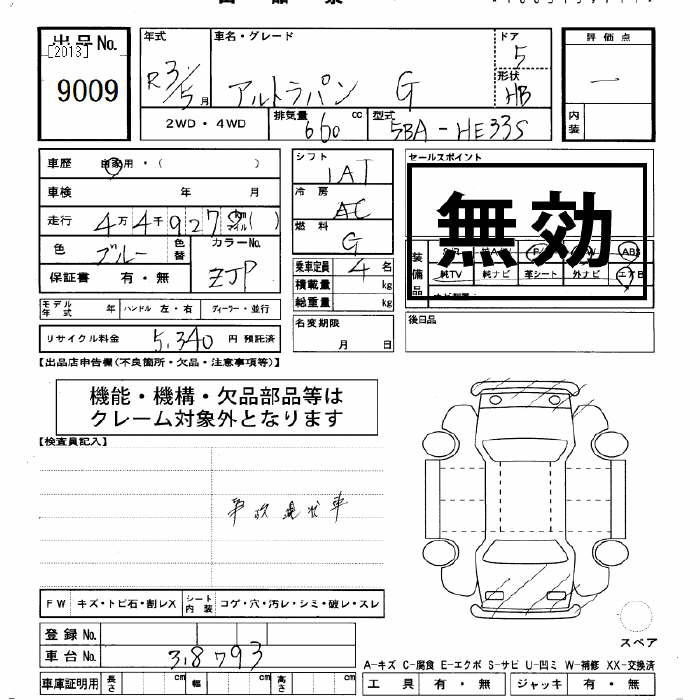 出品No.
[2013]
9009
年式
R3/5月
車名・グレード
アルトラパン G
ドア
5
形状
HB
2WD・4WD
排気量
660 cc
型式
5BA-HE33S
評価点
一
内装
車歴 自家用・( )
車検 年 月
走行 4万4千927 km マイル ( )
色 ブルー 色替 カラーNo. ZJP
保証書 有・無
シフト
IAT
冷房
AC
燃料
G
乗車定員 4 名
積載量 kg
総重量 kg
名変期限
月 日
セールスポイント
無効
装備品
AB
純TV 純ナビ 革シート 外ナビ エアB
後日品
モデル年式 年 ハンドル 左・右 ディーラー・並行
リサイクル料金 5,340 円 預託済
【出品店申告欄(不良箇所・欠品・注意事項等)】
機能・機構・欠品部品等は
クレーム対象外となります
【検査員記入】
事故現状車
FW キズ・トビ石・割レX シート内装 コゲ・穴・汚レ・シミ・破レ・スレ
登録No.
車台No. 38793
車庫証明用 長さ cm 幅 cm 高さ cm
スペア
A-キズ C-腐食 E-エクボ S-サビ U-凹ミ W-補修 XX-交換済
工具 有・無 ジャッキ 有・無